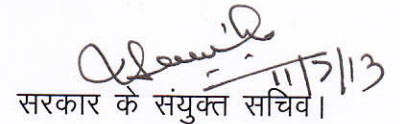 11/7/13
सरकार के संयुक्त सचिव।